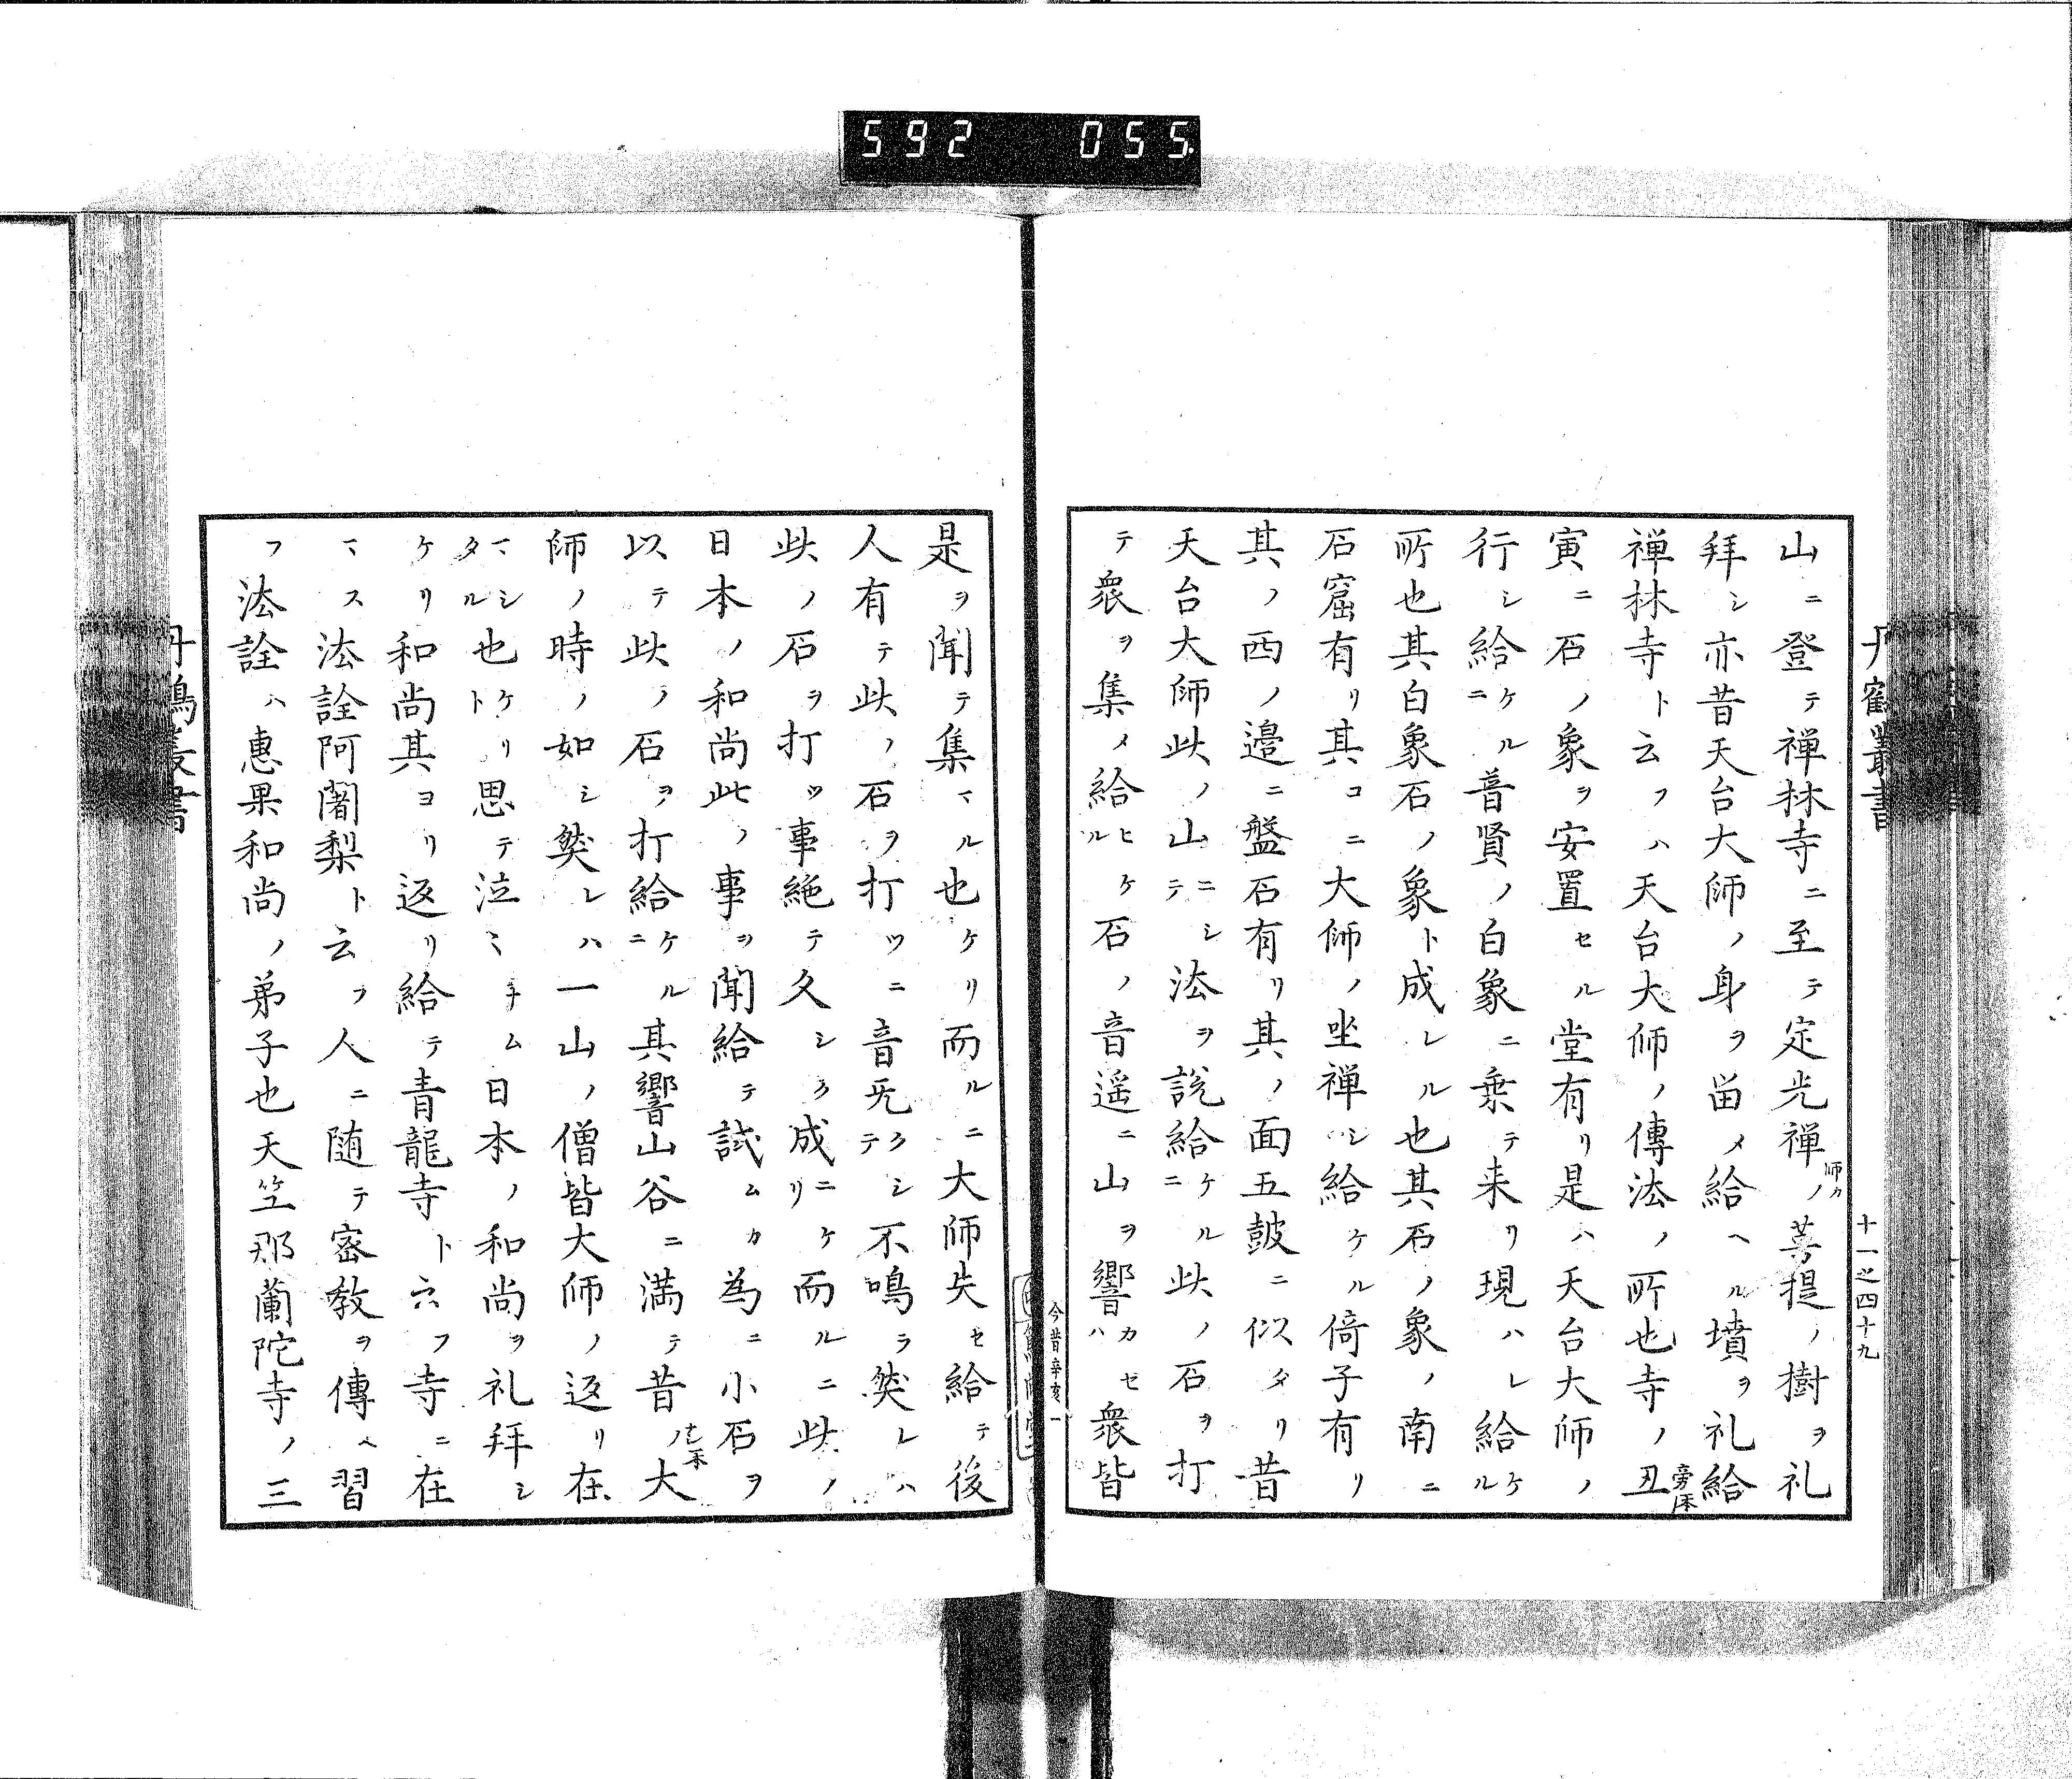 592 055
丹鶴叢書
十一之四十九
山ニ登テ禅林寺ニ至テ定光禅師カノ菩提ノ樹ヲ礼
拜シ亦昔天台大師ノ身ヲ留メ給ヘル墳ヲ礼給
禅林寺ト云フハ天台大師ノ傳法ノ所也寺ノ丑
寅ニ石ノ象ヲ安置セル堂有リ是ハ天台大師ノ
行シ給ケルニ普賢ノ白象ニ乗テ来リ現ハレ給ケル
所也其白象石ノ象ト成レル也其石ノ象ノ南ニ
石窟有リ其コニ大師ノ坐禅シ給ケル倚子有リ
其ノ西ノ邉ニ盤石有リ其ノ面五皷ニ似タリ昔
天台大師此ノ山ニシテ法ヲ説給ケルニ此ノ石ヲ打
テ衆ヲ集メ給ヒケル石ノ音遥ニ山ヲ響カセハ衆皆
今昔辛亥一
是ヲ聞テ集マル也ケリ而ルニ大師失セ給テ後
人有テ此ノ石ヲ打ツニ音无クシテ不鳴ラ然レハ
此ノ石ヲ打ツ事絶テ久シク成ニケリ而ルニ此ノ
日本ノ和尚此ノ事ヲ聞給テ試ムカ為ニ小石ヲ
以テ此ノ石ヲ打給ケルニ其響山谷ニ満テ昔ノ大
師ノ時ノ如シ然レハ一山ノ僧皆大師ノ返リ在
マシタル也ケリト思テ泣ミナム日本ノ和尚ヲ礼拜シ
ケリ和尚其ヨリ返リ給テ青龍寺ト云フ寺ニ在
マス法詮阿闍梨ト云フ人ニ随テ密教ヲ傳ヘ習
フ法詮ハ惠果和尚ノ弟子也天竺那蘭陀寺ノ三